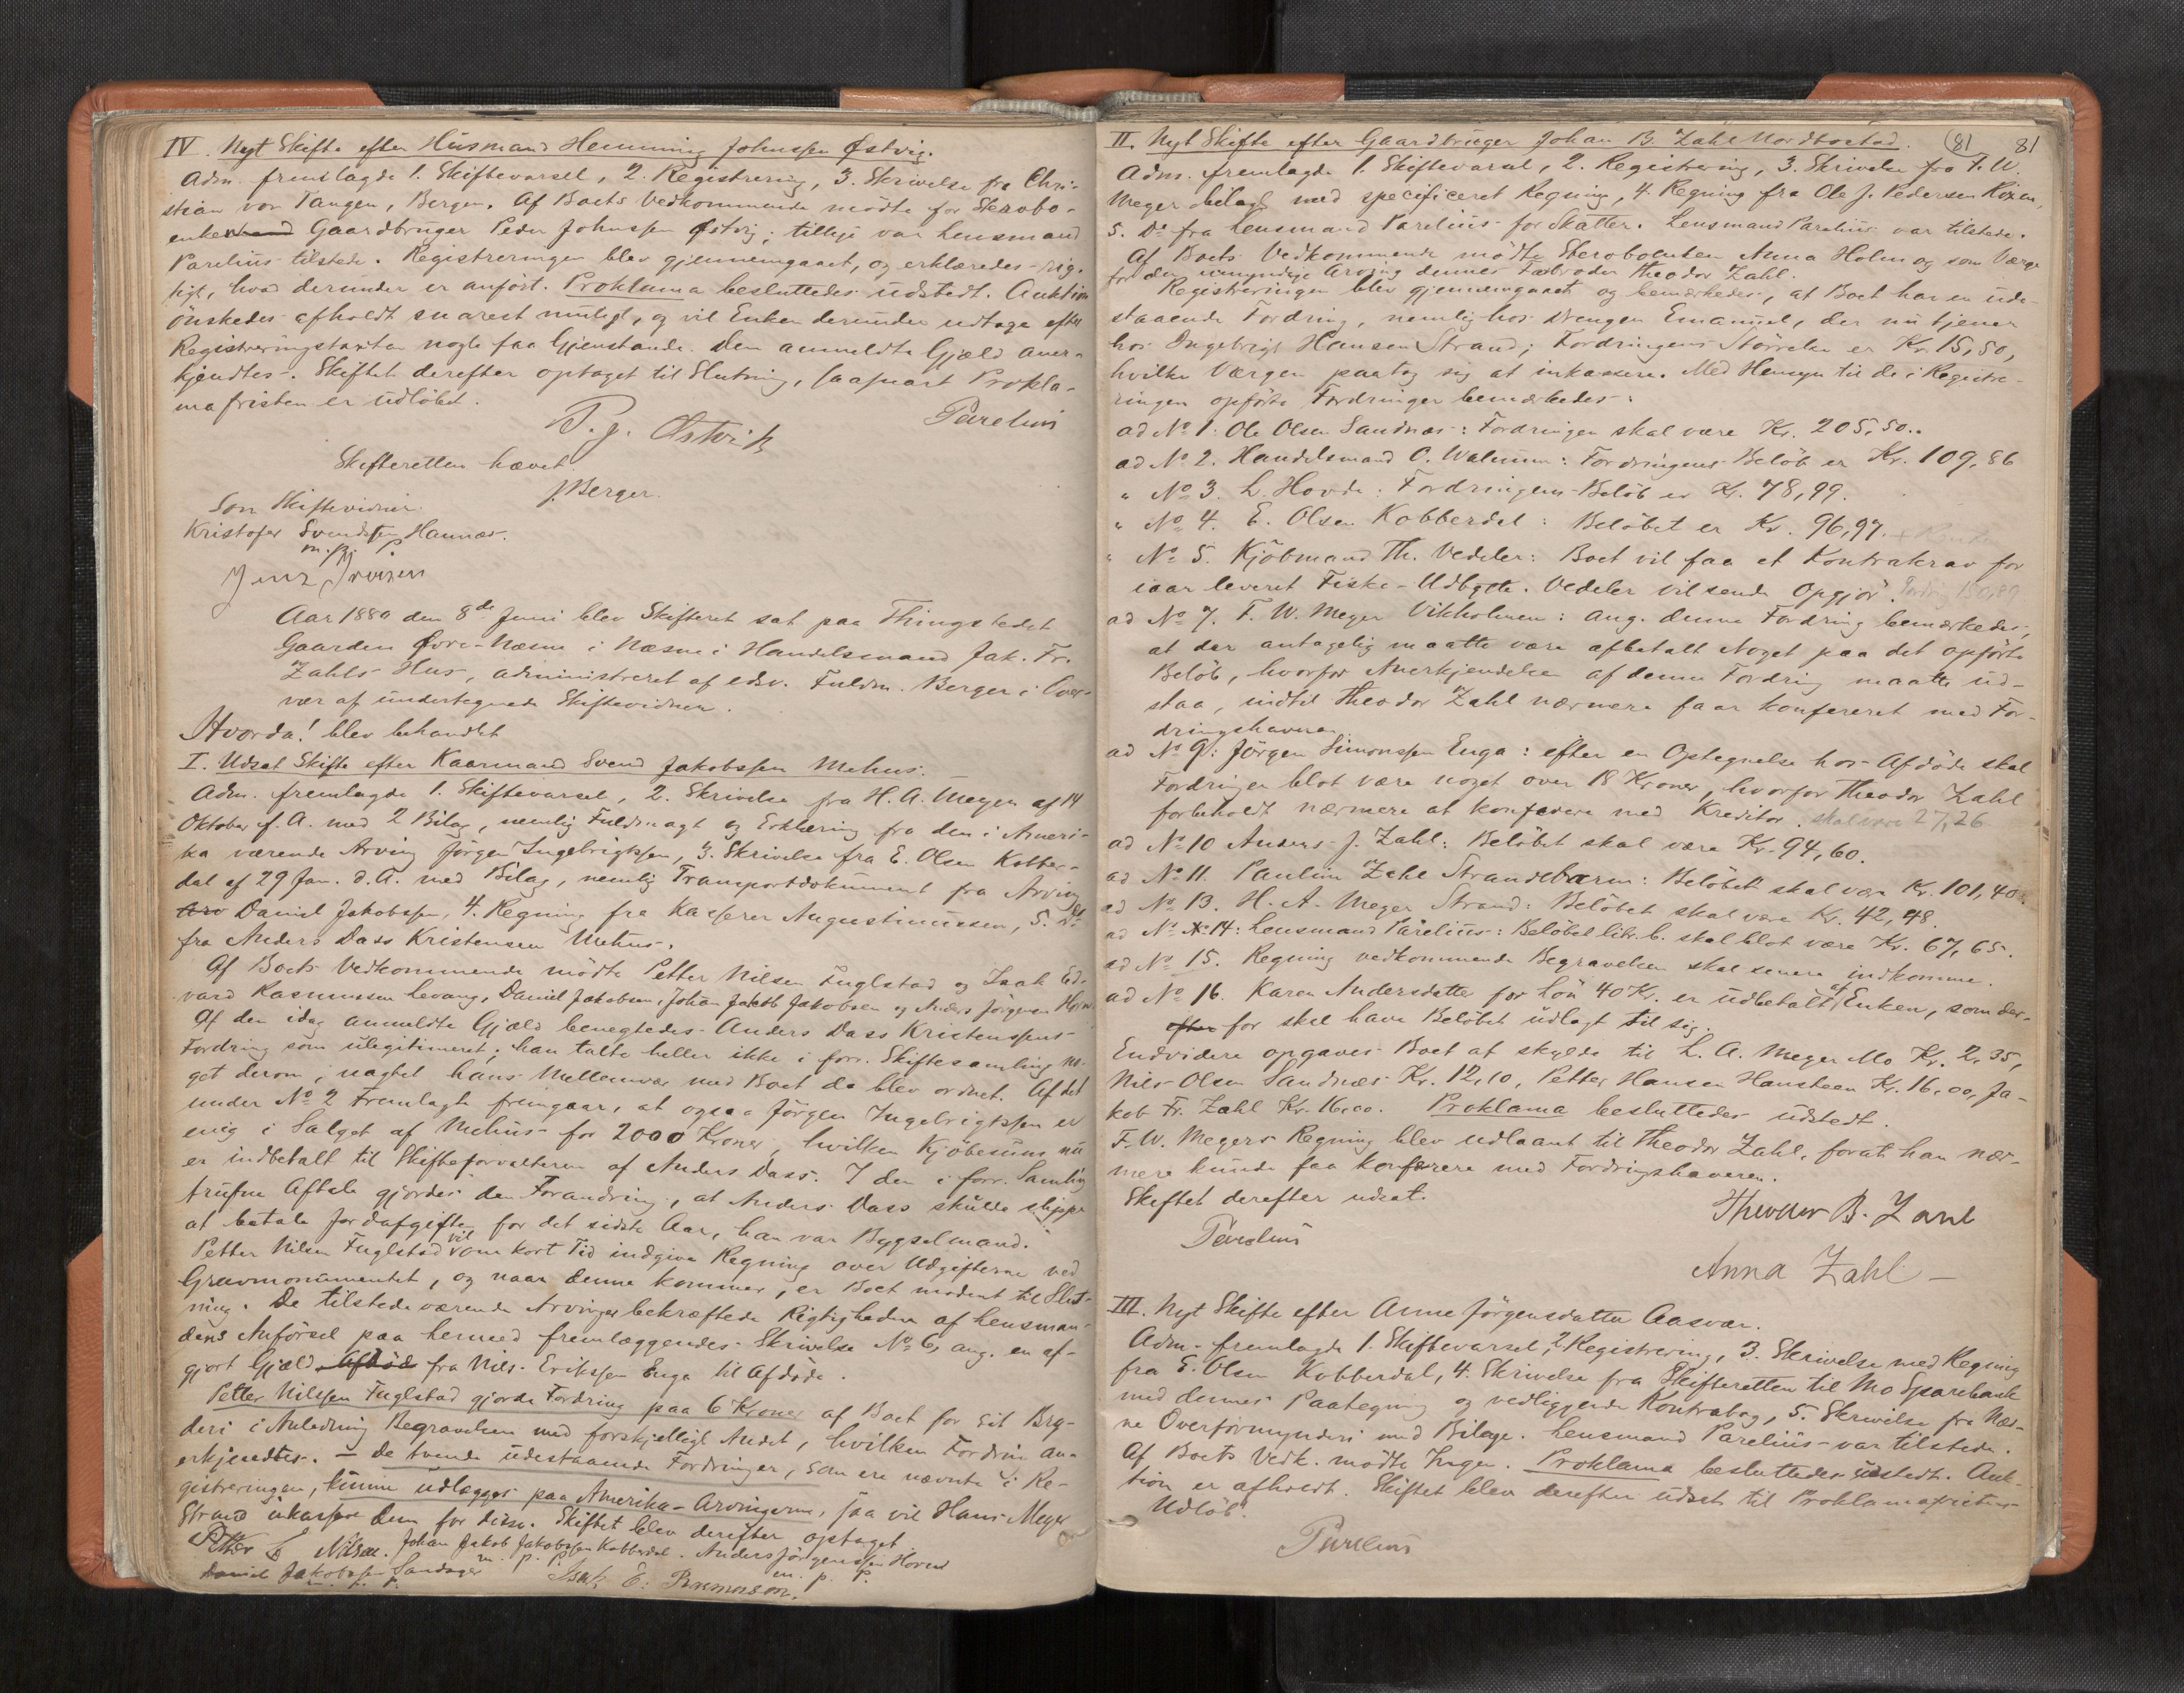 IV. Nyt Skifte efter Husmand Hemming Johnssen Østvig.
Adm. fremlagde 1. Skiftevarsel, 2. Registrering, 3. Skrivelse fra Chri-
stian von Tangen, Bergen. Af Boets Vedkommende mødte for Sterbo-
enken Gaardbruger Peder Johnssen Østvig; tillige var Lensmand
Parelius tilstede. Registreringen blev gjennemgaaet, og erklæredes rig-
tigt, hvad derunder er anført. Proklama besluttedes udstedt. Auktion
ønskedes afholdt snarest muligt, og vil Enken derunder udtage efter
Registreringstaxten nogle faa Gjenstande. Den anmeldte Gjæld aner-
kjendtes. Skiftet derefter optaget til Slutning, saasnart Prokla-
mafristen er udløbet.
P. J. Østvik Parelius
Skifteretten hævet
J. Berger.
Som Skiftevidner.
Kristofer Svendsen Hannæs.
m. p. P.
Jens Iversen
Aar 1880 den 8de Juni blev Skifteret sat paa Thingstedet
Gaarden Øvre-Næsne i Næsne i Handelsmand Jak. Fr.
Zahls Hus, administreret af edsv. Fuldm. Berger i Over-
vær af undertegnede Skiftevidner.
Hvorda! blev behandlet
I. Udsat Skifte efter Kaarmand Svend Jakobssen Mehus.
Adm. fremlagde 1. Skiftevarsel, 2. Skrivelse fra H. A. Meyer af 14
Oktober f. A. med 2 Bilag, nemlig Fuldmagt og Erklæring fra den i Ameri-
ka værende Arving Jørgen Ingebrigtssen, 3. Skrivelse fra E. Olsen Kobber-
dal af 29 Jan. d. A. med Bilag, nemlig Transportdokument fra Arving
Arv Daniel Jakobssen, 4. Regning fra Kasserer Augustinussen, 5. Do
fra Anders Dass Kristensen Mehus.
Af Boets Vedkommende mødte Petter Nilsen Fuglstad og Isak Ed-
vard Rasmussen Levang, Daniel Jakobsen, Johan Jakob Jakobsen og Anders Jørgensen
Af den idag anmeldte Gjæld benegtedes Anders Dass Kristenssens
Fordring som ulegitimeret; han talte heller ikke i forr. Skiftesamling no-
get derom, uagtet hans Mellemvær med Boet da blev ordnet. Af det
under No 2 Fremlagte fremgaar, at ogsaa Jørgen Ingebrigtssen er
enig i Salget af Mehus for 2000 Kroner, hvilken Kjøbesum nu
er indbetalt til Skifteforvalteren af Anders Dass. I den i forr. Samling
trufne Aftale gjordes den Forandring, at Anders Dass skulde slippe
at betale Jordafgiften for det sidste Aar, han var Bygselmand.
Petter Nilsen Fuglstad vil om kort Tid indgive Regning over Udgifterne ved
Gravmonumentet, og naar denne kommer, er Boet modent til Slut-
ning. De tilstedeværende Arvinger bekræftede Rigtigheden af Lensman-
dens Anførsel paa hermed fremlæggendes Skrivelse No 6, ang. en af-
gjort Gjæld Afdøde fra Nils Erikssen Enga til Afdøde.
Petter Nilssen Fuglstad gjorde Fordring paa 6 Kroner af Boet for sit Bry-
deri i Anledning Begravelsen med forskjelligt Andet, hvilken Fordrin an-
erkjendtes. – De tvende udestaaende Fordringer, som ere nævnte i Re-
gistreringen, kunne udlægges paa Amerika-Arvingerne, saa vil Hans Meyer
Strand inkassere dem for disse. Skiftet blev derefter optaget.
Petter Nilsen. Johan Jakob Jakobssen Kobberdal. Anders Jørgenssen
m. p. P. m. p. P.
Daniel Jakobssen Sandager Isak E. Rasmusen.
m. p. P.
II. Nyt Skifte efter Gaardbruger Johan B. Zahl Nordbostad. (81) 81
Adm. fremlagde 1. Skiftevarsel, 2. Registrering, 3. Skrivelse fra F. W.
Meyer bilagt med specificeret Regning, 4. Regning fra Ole J. Pedersen
5. Do fra Lensmand Parelius for Skatter. Lensmand Parelius var tilstede.
Af Boets Vedkommende mødte Sterboenken Anna Holm og som Værge
for den umyndige Arving dennes Farbroder Theodor Zahl.
Registreringen blev gjennemgaaet og bemærkedes, at Boet har en ude-
staaende Fordring, nemlig hos Drengen Emanuel, der nu tjener
hos Ingebrigt Hansen Strand; Fordringens Størrelse er Kr. 15,50,
hvilke Værgen paatog sig at inkassere. Med Hensyn til de i Registre-
ringen opførte Fordringer bemærkedes:
ad No 1. Ole Olsen Sandnæs: Fordringen skal være Kr. 205,50.
ad No 2. Handelsmand C. Walnum: Fordringens Beløb er Kr. 109,86
" No 3. L. Hovde: Fordringens Beløb er Kr. 78,99.
" No 4. E. Olsen Kobberdal: Beløbet er Kr. 96,97. + Renter
" No 5. Kjøbmand Th. Vedeler: Boet vil faa et Kontrakrav for
iaar leveret Fiske-Udbytte. Vedeler vil sende Opgjør.
ad No 7. F. W. Meyer Vikholmen: ang. denne Fordring bemærkedes,
at der antagelig maatte være afbetalt Noget paa det opførte
Beløb, hvorfor Anerkjendelse af denne Fordring maatte ud-
staa, indtil Theodor Zahl nærmere faar konfereret med For-
dringshaveren.
ad No 9: Jørgen Simonssen Enga: efter en Optegnelse hos Afdøde skal
Fordringen blot være noget over 18 Kroner, hvorfor Theodor Zahl
forbeholdt nærmere at konferere med Kreditor. skal være 27,26
ad No 10 Anders J. Zahl: Beløbet skal være Kr. 94,60.
ad No 11. Pauline Zahl Strandebarm: Beløbet skal være Kr. 101,40.
ad No 13. H. A. Meyer Strand: Beløbet skal være Kr. 42,48.
ad No 14: Lensmand Parelius: Beløbet litr. b. skal blot være Kr. 67,65.
ad No 15. Regning vedkommende Begravelsen skal senere indkomme.
ad No 16. Karen Andersdatter for Løn 40 Kr. er udbetalt af Enken, som der-
efter for skal have Beløbet udlagt til sig.
Endvidere opgaves Boet at skylde til L. A. Meyer Mo Kr. 2,35,
Nils Olsen Sandnæs Kr. 12,10, Petter Hansen Hansteen Kr. 16,00, Ja-
kob Fr. Zahl Kr. 16,00. Proklama besluttedes udstedt.
F. W. Meyers Regning blev udlaant til Theodor Zahl, forat han nær-
mere kunde faa konferere med Fordringshaveren.
Skiftet derefter udsat.
Theodor B. Zahl
Parelius
Anna Zahl –
III. Nyt Skifte efter Anne Jørgensdatter Aasvær.
Adm. fremlagde 1. Skiftevarsel, 2. Registrering, 3. Skrivelse med Regning
fra E. Olsen Kobberdal, 4. Skrivelse fra Skifteretten til Mo Sparebank
med dennes Paategning og vedliggende Kontrabog, 5. Skrivelse fra Næs-
ne Overformynderi med Bilage. Lensmand Parelius var tilstede.
Af Boets Vedk. mødte Ingen. Proklama besluttedes udstedt. Auk-
tion er afholdt. Skiftet blev derefter udsat til Proklamafristens
Udløb.
Parelius